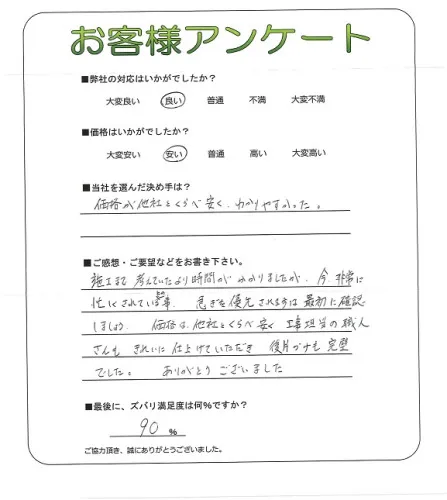 お客様アンケート
■弊社の対応はいかがでしたか?
大変良い 良い 普通 不満 大変不満
■価格はいかがでしたか?
大変安い 安い 普通 高い 大変高い
■当社を選んだ決め手は?
価格が他社とくらべ安く、わかりやすかった。
■ご感想・ご要望などをお書き下さい。
施工まで考えていたより時間がかかりましたが、今、非常に
忙しくされている事 急ぎを優先される方は最初に確認
しましょう 価格は、他社とくらべ安く 工事担当の職人
さんも きれいに仕上げていただき 後片づけも完璧
でした。 ありがとうございました
■最後に、ズバリ満足度は何%ですか?
90 %
ご協力頂き、誠にありがとうございました。